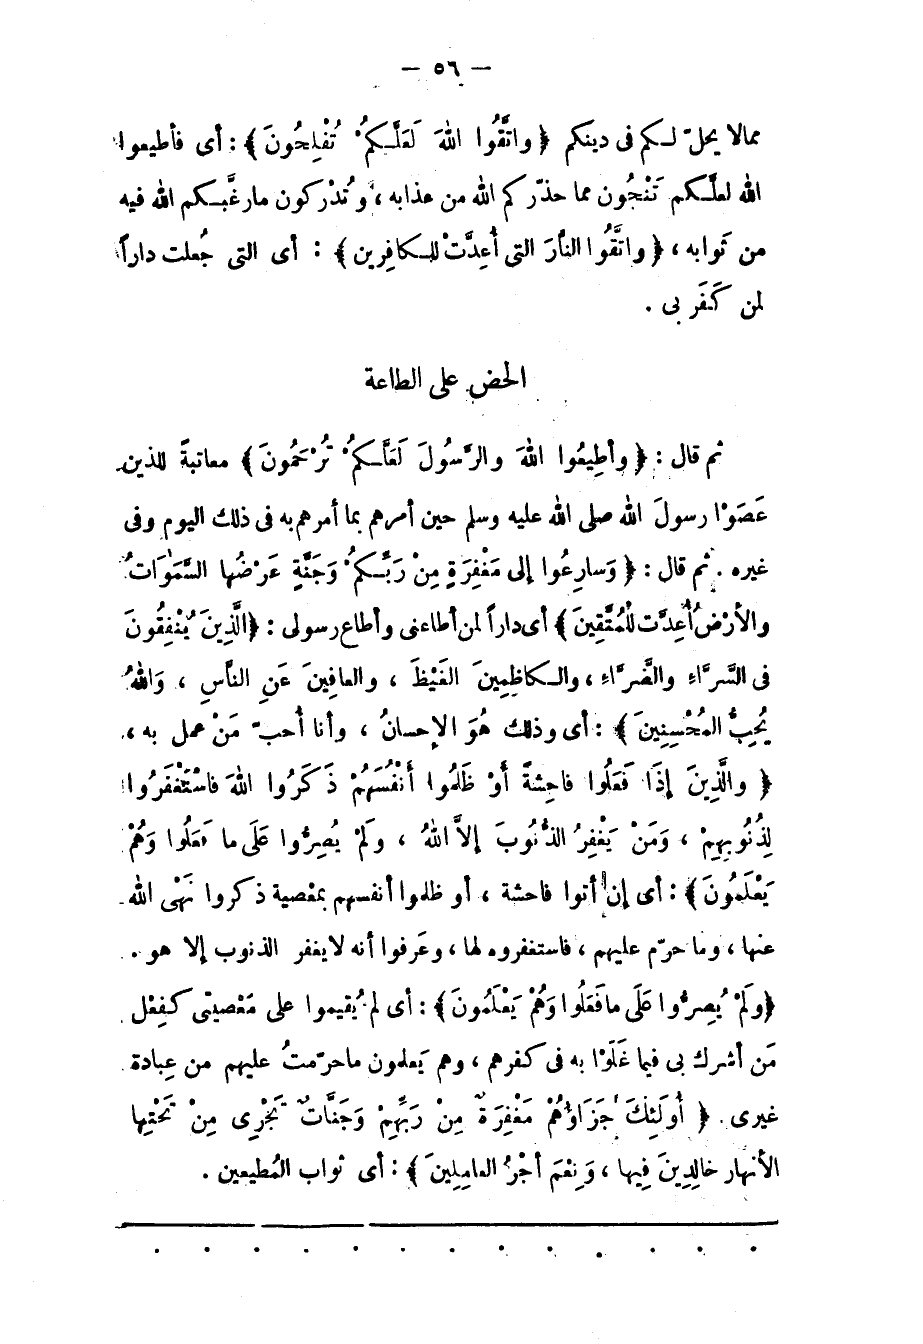 — ٥٦ —
ممالا يحلّ لـكم فى دينكم ﴿ واتَّقُوا اللهَ لَعَلَّـكُمْ تُفْلِحُونَ ﴾ : أى فأطيعوا
الله لعلَّـكم تَنْجُون مما حذّركم الله من عذابه ، وتُدْركون مارغَّبـكم الله فيه
من ثوابه ، ﴿ واتَّقُوا النارَ التى أُعِدَّتْ للـكافِرين ﴾ : أى التى جُعلت داراً
لمن كَفَر بى .
الحض على الطاعة
ثم قال : ﴿ وأطِيعُوا اللهَ والرَّسُولَ لَعَلَّـكمُ تُرْحَمُونَ ﴾ معاتبةً للذين
عَصَوْا رسولَ الله صلى الله عليه وسلم حين أمرهم بما أمرهم به فى ذلك اليوم وفى
غيره . ثم قال : ﴿ وَسارِعُوا إلى مَغْفِرَةٍ مِنْ رَبِّـكُمْ وَجَنَّةٍ عَرْضُها السَّمَوَاتُ
والأرْضُ أُعِدَّت للْمُتَّقِينَ ﴾ أى داراً لمن أطاعنى وأطاع رسولى : ﴿الَّذِينَ يُنْفِقُونَ
فى السَّرَّاءِ والضَّرَّاءِ ، والـكاظِمِينَ الغَيْظَ ، والعافِينَ عَنِ الناسِ ، وَاللهُ
يُحِبُّ المُحْسِنِينَ ﴾ : أى وذلك هُوَ الإحسانُ ، وأنا أحبّ مَنْ عمل به ،
﴿ والَّذِينَ إذَا فَعَلُوا فاحِشةً أَوْ ظَلَمُوا أَنْفُسَهُمْ ذَكَرُوا اللهَ فاسْتَغْفَرُوا
لِذُنُوبِهِمْ ، وَمَنْ يَغْفِرُ الذُّنُوبَ إلاَّ اللهُ ، ولَمْ يُصِرُّوا عَلَى ما فَعَلُوا وَهُمْ
يَعْلَمُونَ ﴾ : أى إن أتوا فاحشة ، أو ظلموا أنفسهم بمعْصية ذكروا نَهْى الله
عنها ، وما حرّم عليهم ، فاستغفروه لها ، وعَرفوا أنه لايغفر الذنوب إلا هو .
﴿ولَمْ يُصِرُّوا عَلَى مافَعَلُوا وَهُمْ يَعْلَمُونَ﴾ : أى لم يُقيموا على مَعْصيتى كفِعْل
مَن أشرك بى فيما غَلَوْا به فى كفرهم ، وهم يَعلمون ماحرّمتُ عليهم من عِبادة
غيرى . ﴿ أُولَئِكَ جَزَاؤُهُمْ مَغْفِرَةٌ مِنْ رَبِّهِمْ وَجَنَّاتٌ تَجْرِى مِنْ تَحْتِها
الأنهار خالِدِينَ فِيها ، وَنِعْمَ أجْرُ العامِلِينَ ﴾ : أى ثواب المُطيعين .